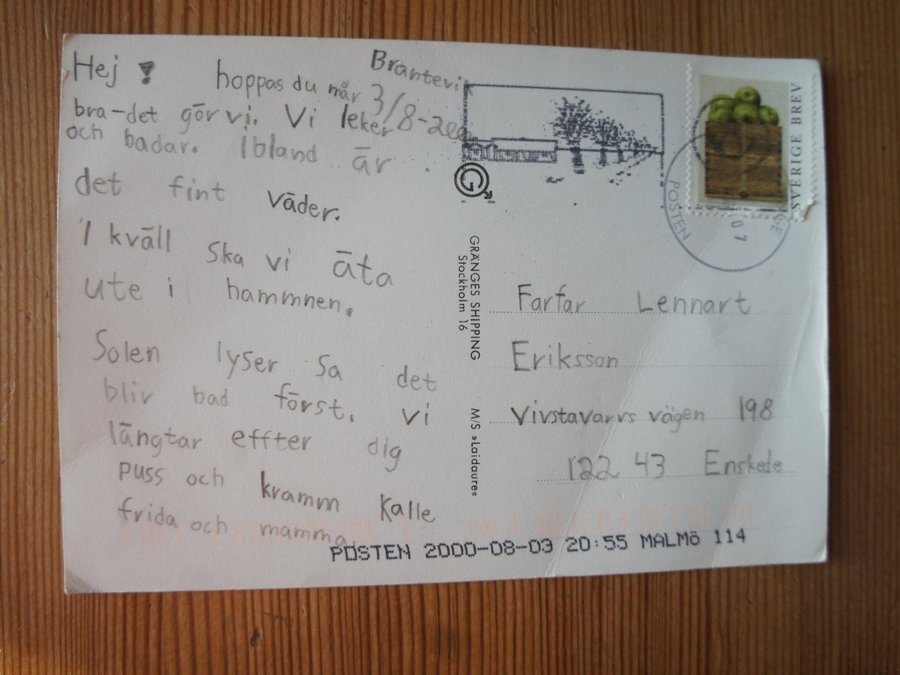 Brantevik
3/8-200
Hej! hoppas du mår
bra-det gör vi. Vi leker
och badar. Ibland är
det fint väder.
I kväll ska vi äta
ute i hammnen.
Solen lyser Sa det
bliv bad först. vi
längtar effter dig
puss och kramm Kalle
frida och mamma.
GRÄNGES SHIPPING
Stockholm 16
M/S »Laidaure«
SVERIGE BREV
POSTEN
Farfar Lennart
Eriksson
Vivstavarvs vägen 198
122 43 Enskede
POSTEN 2000-08-03 20:55 MALMÖ 114